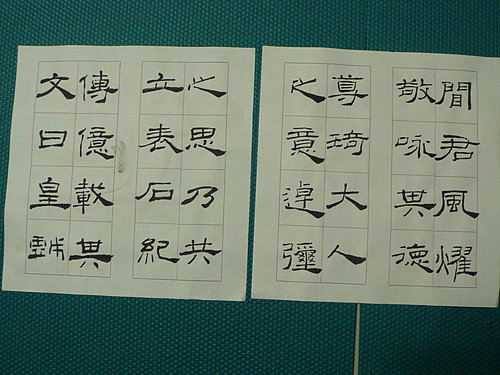 聞君風燿
敬咏其德
尊琦大人
之意逴彌
之思乃共
立表石紀
傳億載其
文曰皇戲